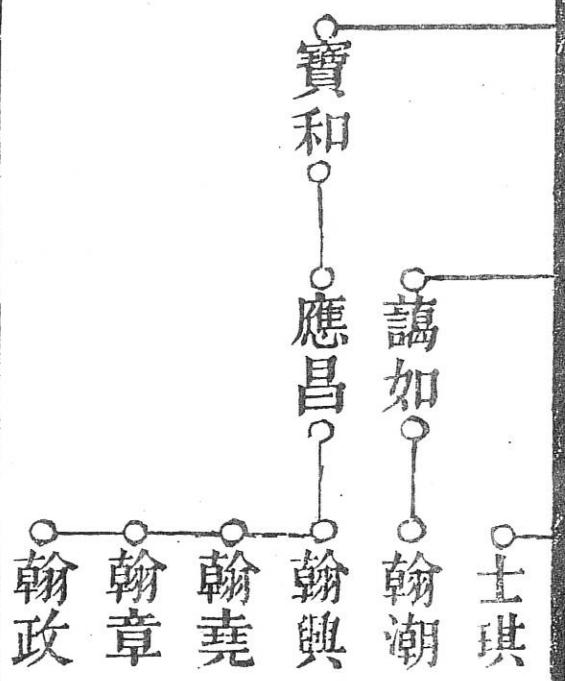 寶和
應昌
藹如
士琪
翰潮
翰興
翰堯
翰章
翰政